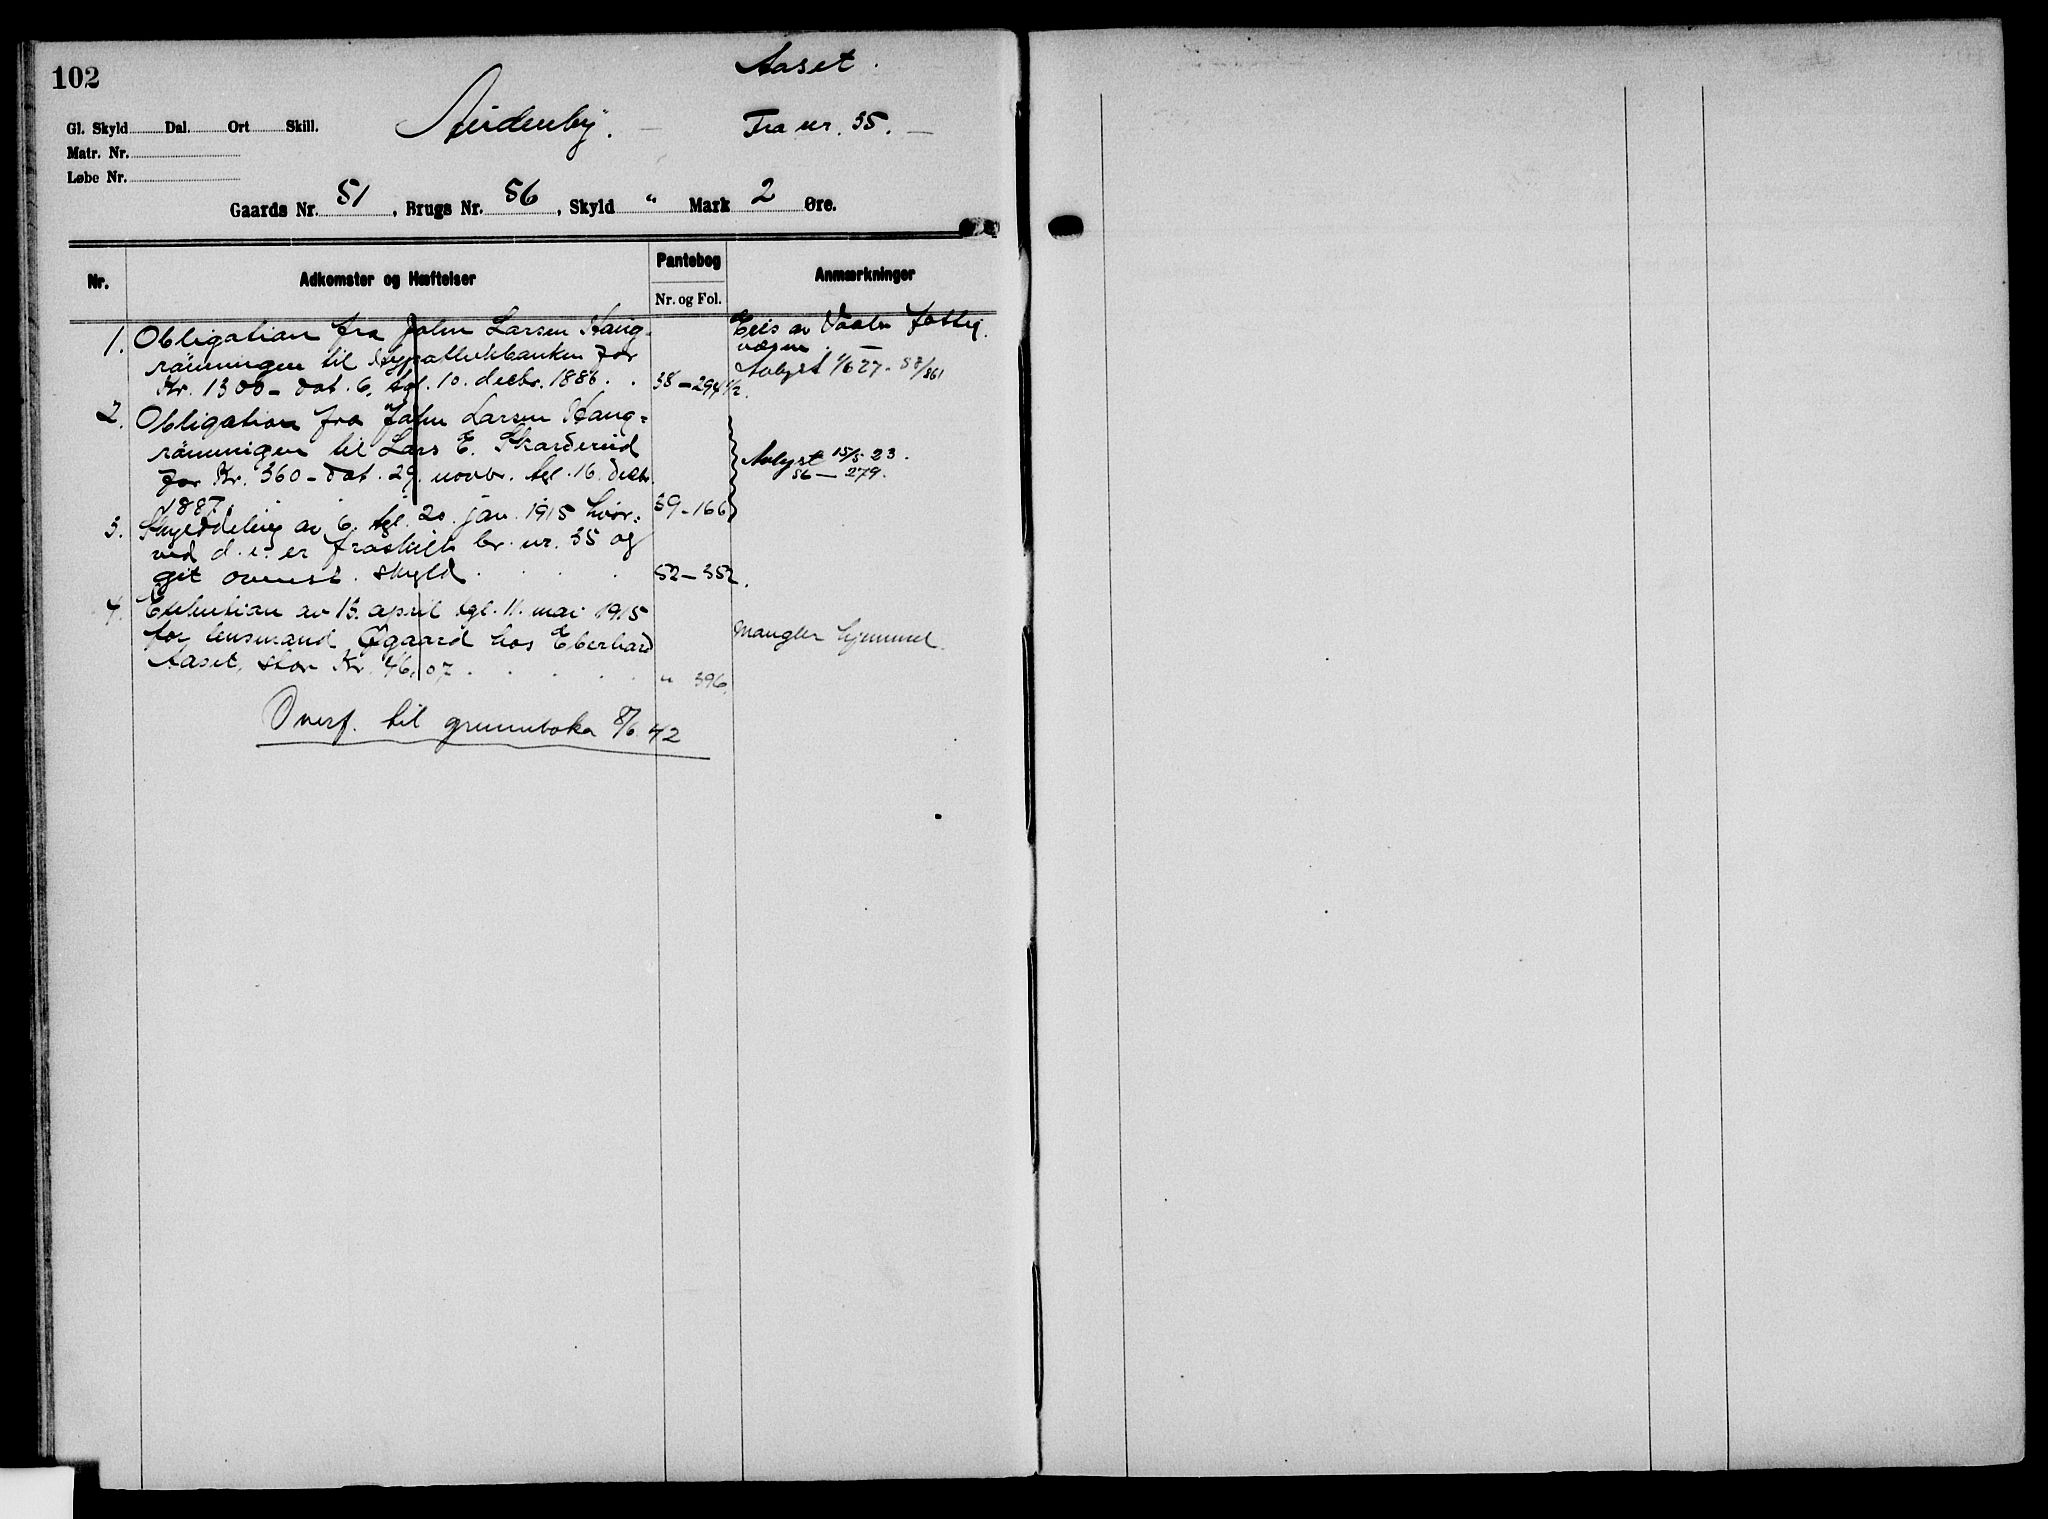 102
Aaset.
Fra nr. 35. —
Gl. Skyld Dal. Ort Skill.
Matr. Nr.
Løbe Nr.
Gaards Nr. 51, Brugs Nr. 56, Skyld " Mark 2 Øre.
Nr. Adkomster og Hæftelser Pantebog Nr. og Fol. Anmærkninger
1. Obligation fra John Larsen Haug-
rønningen til Hypothekbanken for
Kr. 1300 - dat. 6. tgl. 10. decbr. 1886. . 38-294 1/2.
Eies av Vaaler Fattig-
væsen.
Avlyst 1/6 27. 57/361
2. Obligation fra John Larsen Haug=
rønningen til Lars E. Skarderud
for Kr. 360 - dat. 29. novbr. tgl. 16. decbr.
1887. 39-166
Avlyst 15/5 23.
56-279.
3. Skylddeling av 6. tgl. 20. jan. 1915 hvor=
ved d. e. er fraskilt br. nr. 35 og
git ovenst. skyld . . . . 52-352.
4. Exekution av 13. april tgl. 11. mai 1915
for lensmand Øgaard hos Eberhard
Aaset, stor Kr. 46,07 . . . . . " 396.
Mangler hjemmel.
Overf. til grunnboka 8/6 42